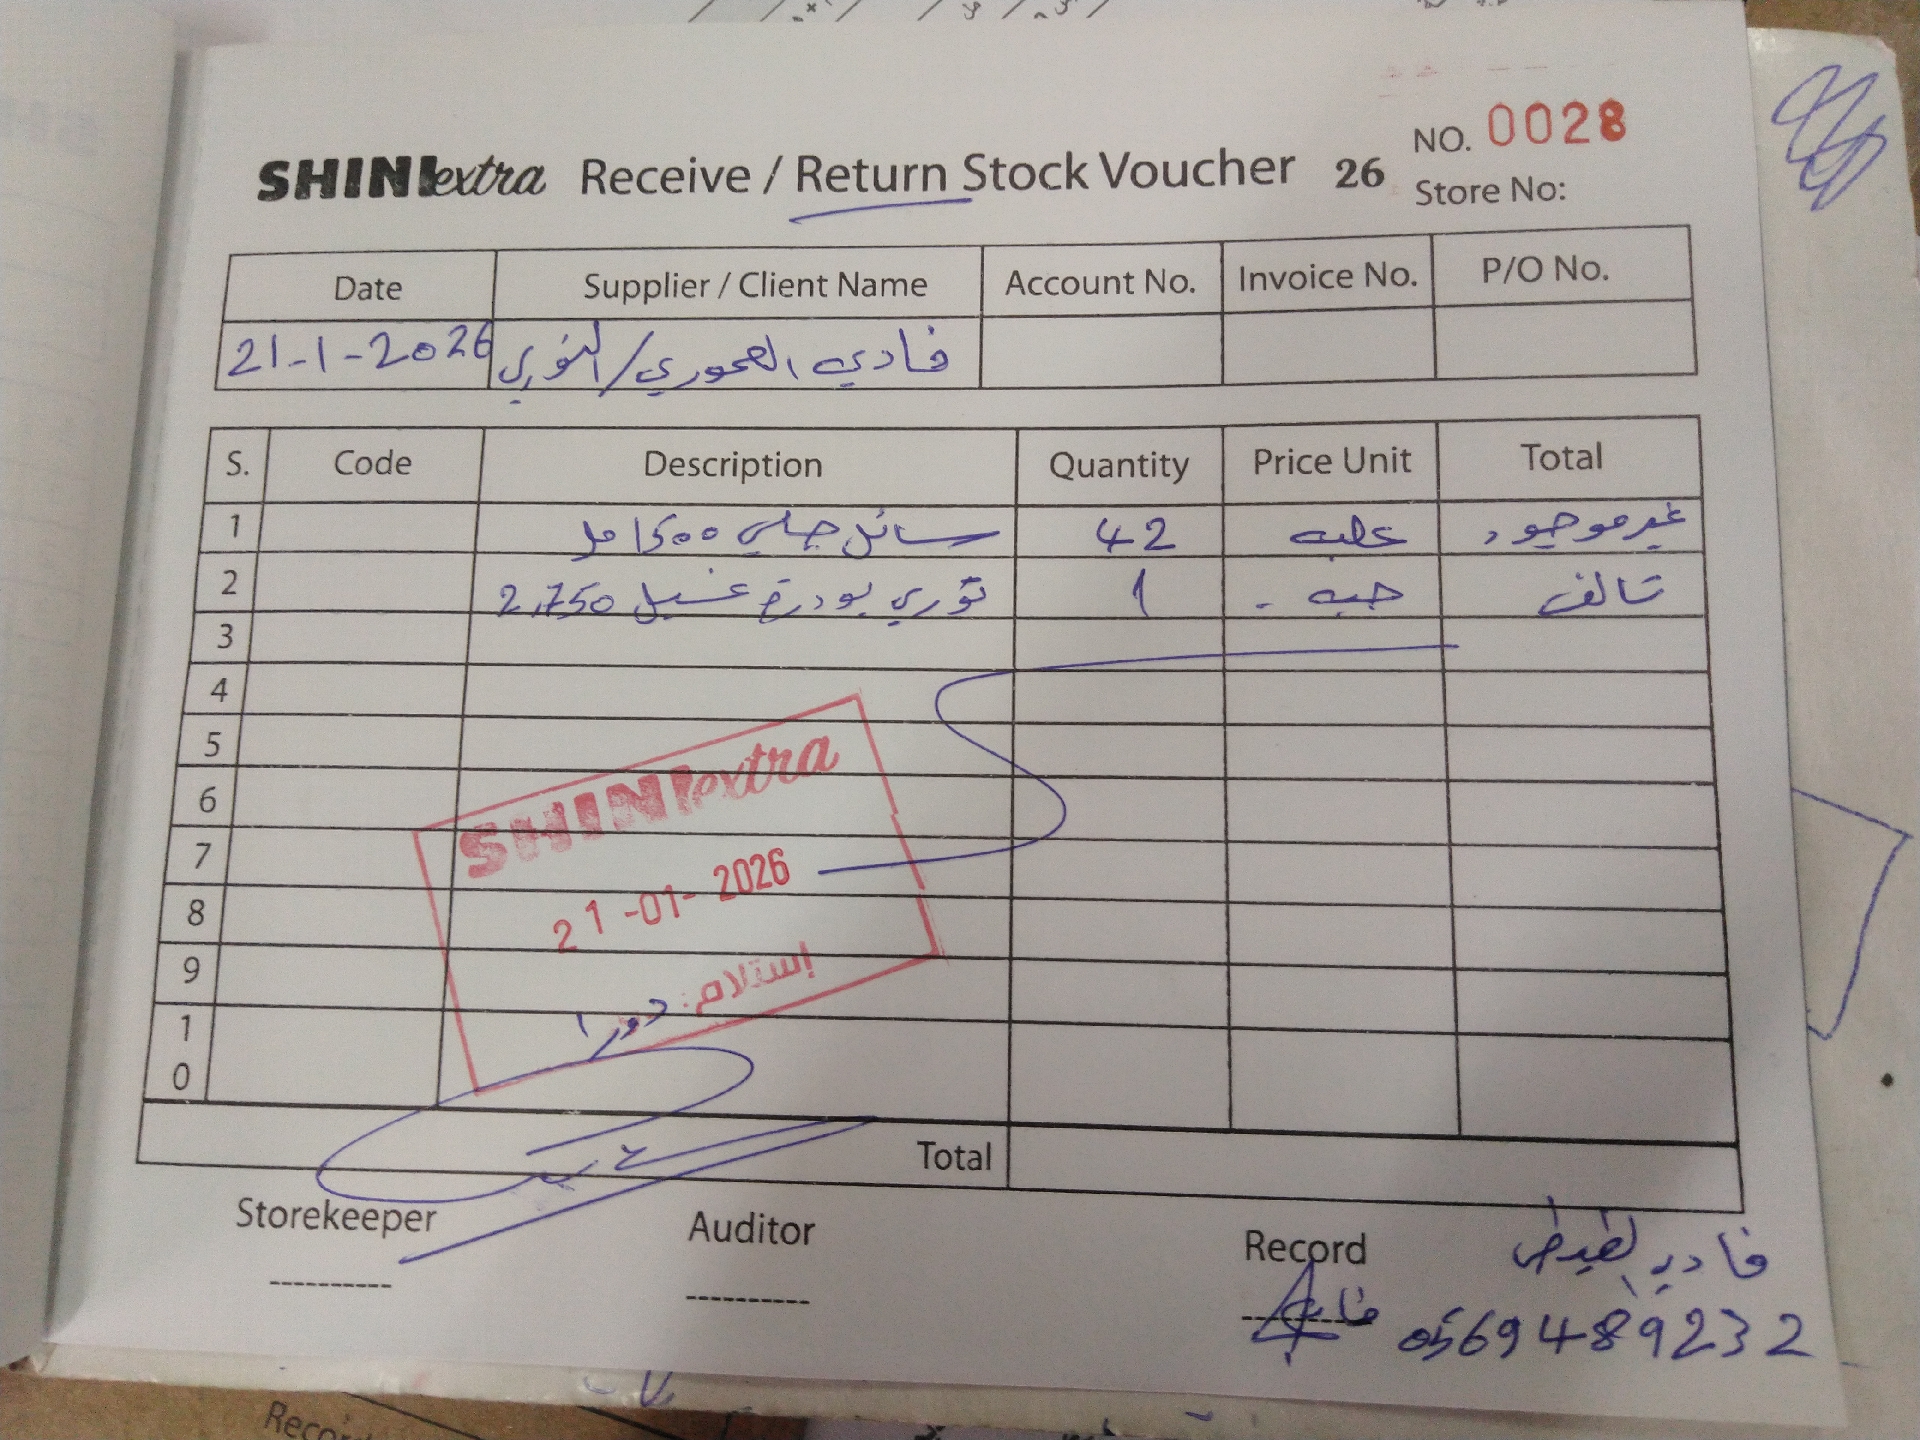 SHINI extra Receive / Return Stock Voucher 26 NO. 0028
Store No:
Date Supplier / Client Name Account No. Invoice No. P/O No.
21-1-2026 فادي العموري/النوري
S. Code Description Quantity Price Unit Total
1 سائل جلي 1500 مل 42 علبه غير موجود
2 نوري بودرة غسيل 2,750 1 حبه تالف
3
4
5
6
7
8
9
10
SHINI extra
21-01-2026
إستلام: دورا
Total
Storekeeper Auditor Record
فادي
0569489232
Record